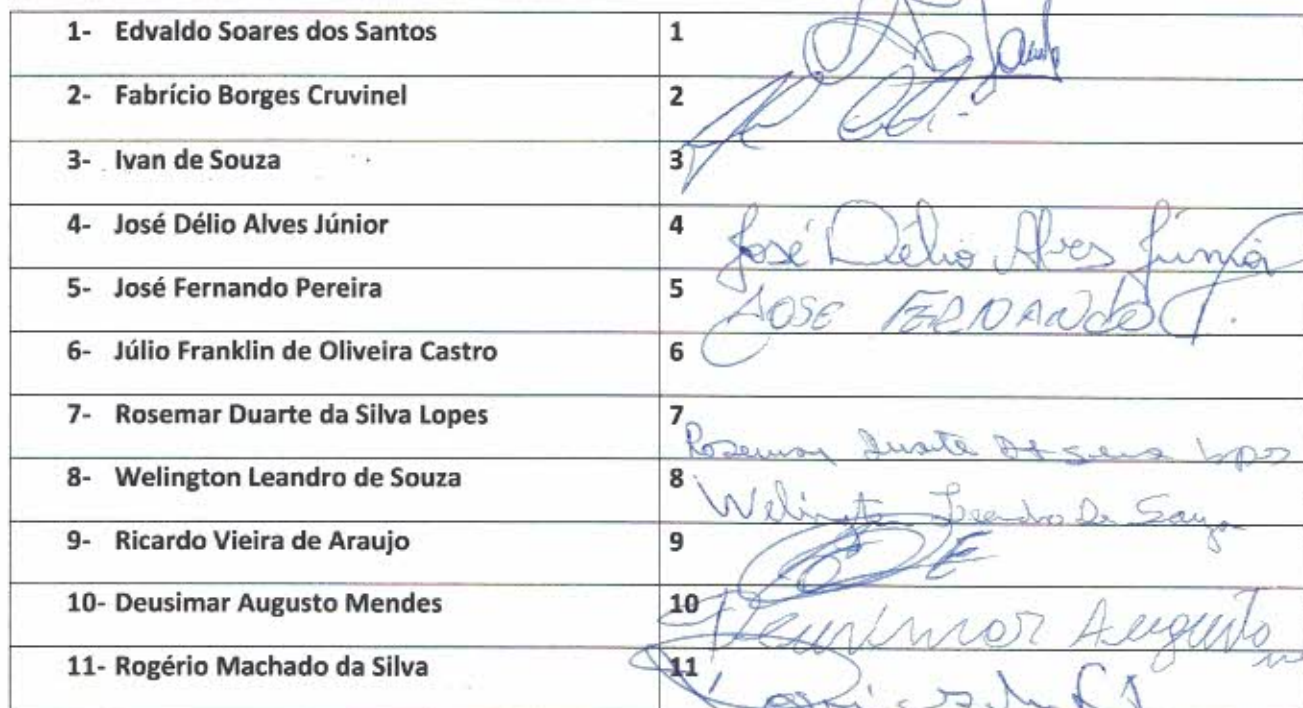 1- Edvaldo Soares dos Santos 1
2- Fabrício Borges Cruvinel 2
3- Ivan de Souza 3
4- José Délio Alves Júnior 4 José Délio Alves Júnior
5- José Fernando Pereira 5 JOSE FERNANDO P.
6- Júlio Franklin de Oliveira Castro 6
7- Rosemar Duarte da Silva Lopes 7 Rosemar Duarte da Silva Lopes
8- Welington Leandro de Souza 8 Welington Leandro De Souza
9- Ricardo Vieira de Araujo 9
10- Deusimar Augusto Mendes 10 Deusimar Augusto
11- Rogério Machado da Silva 11